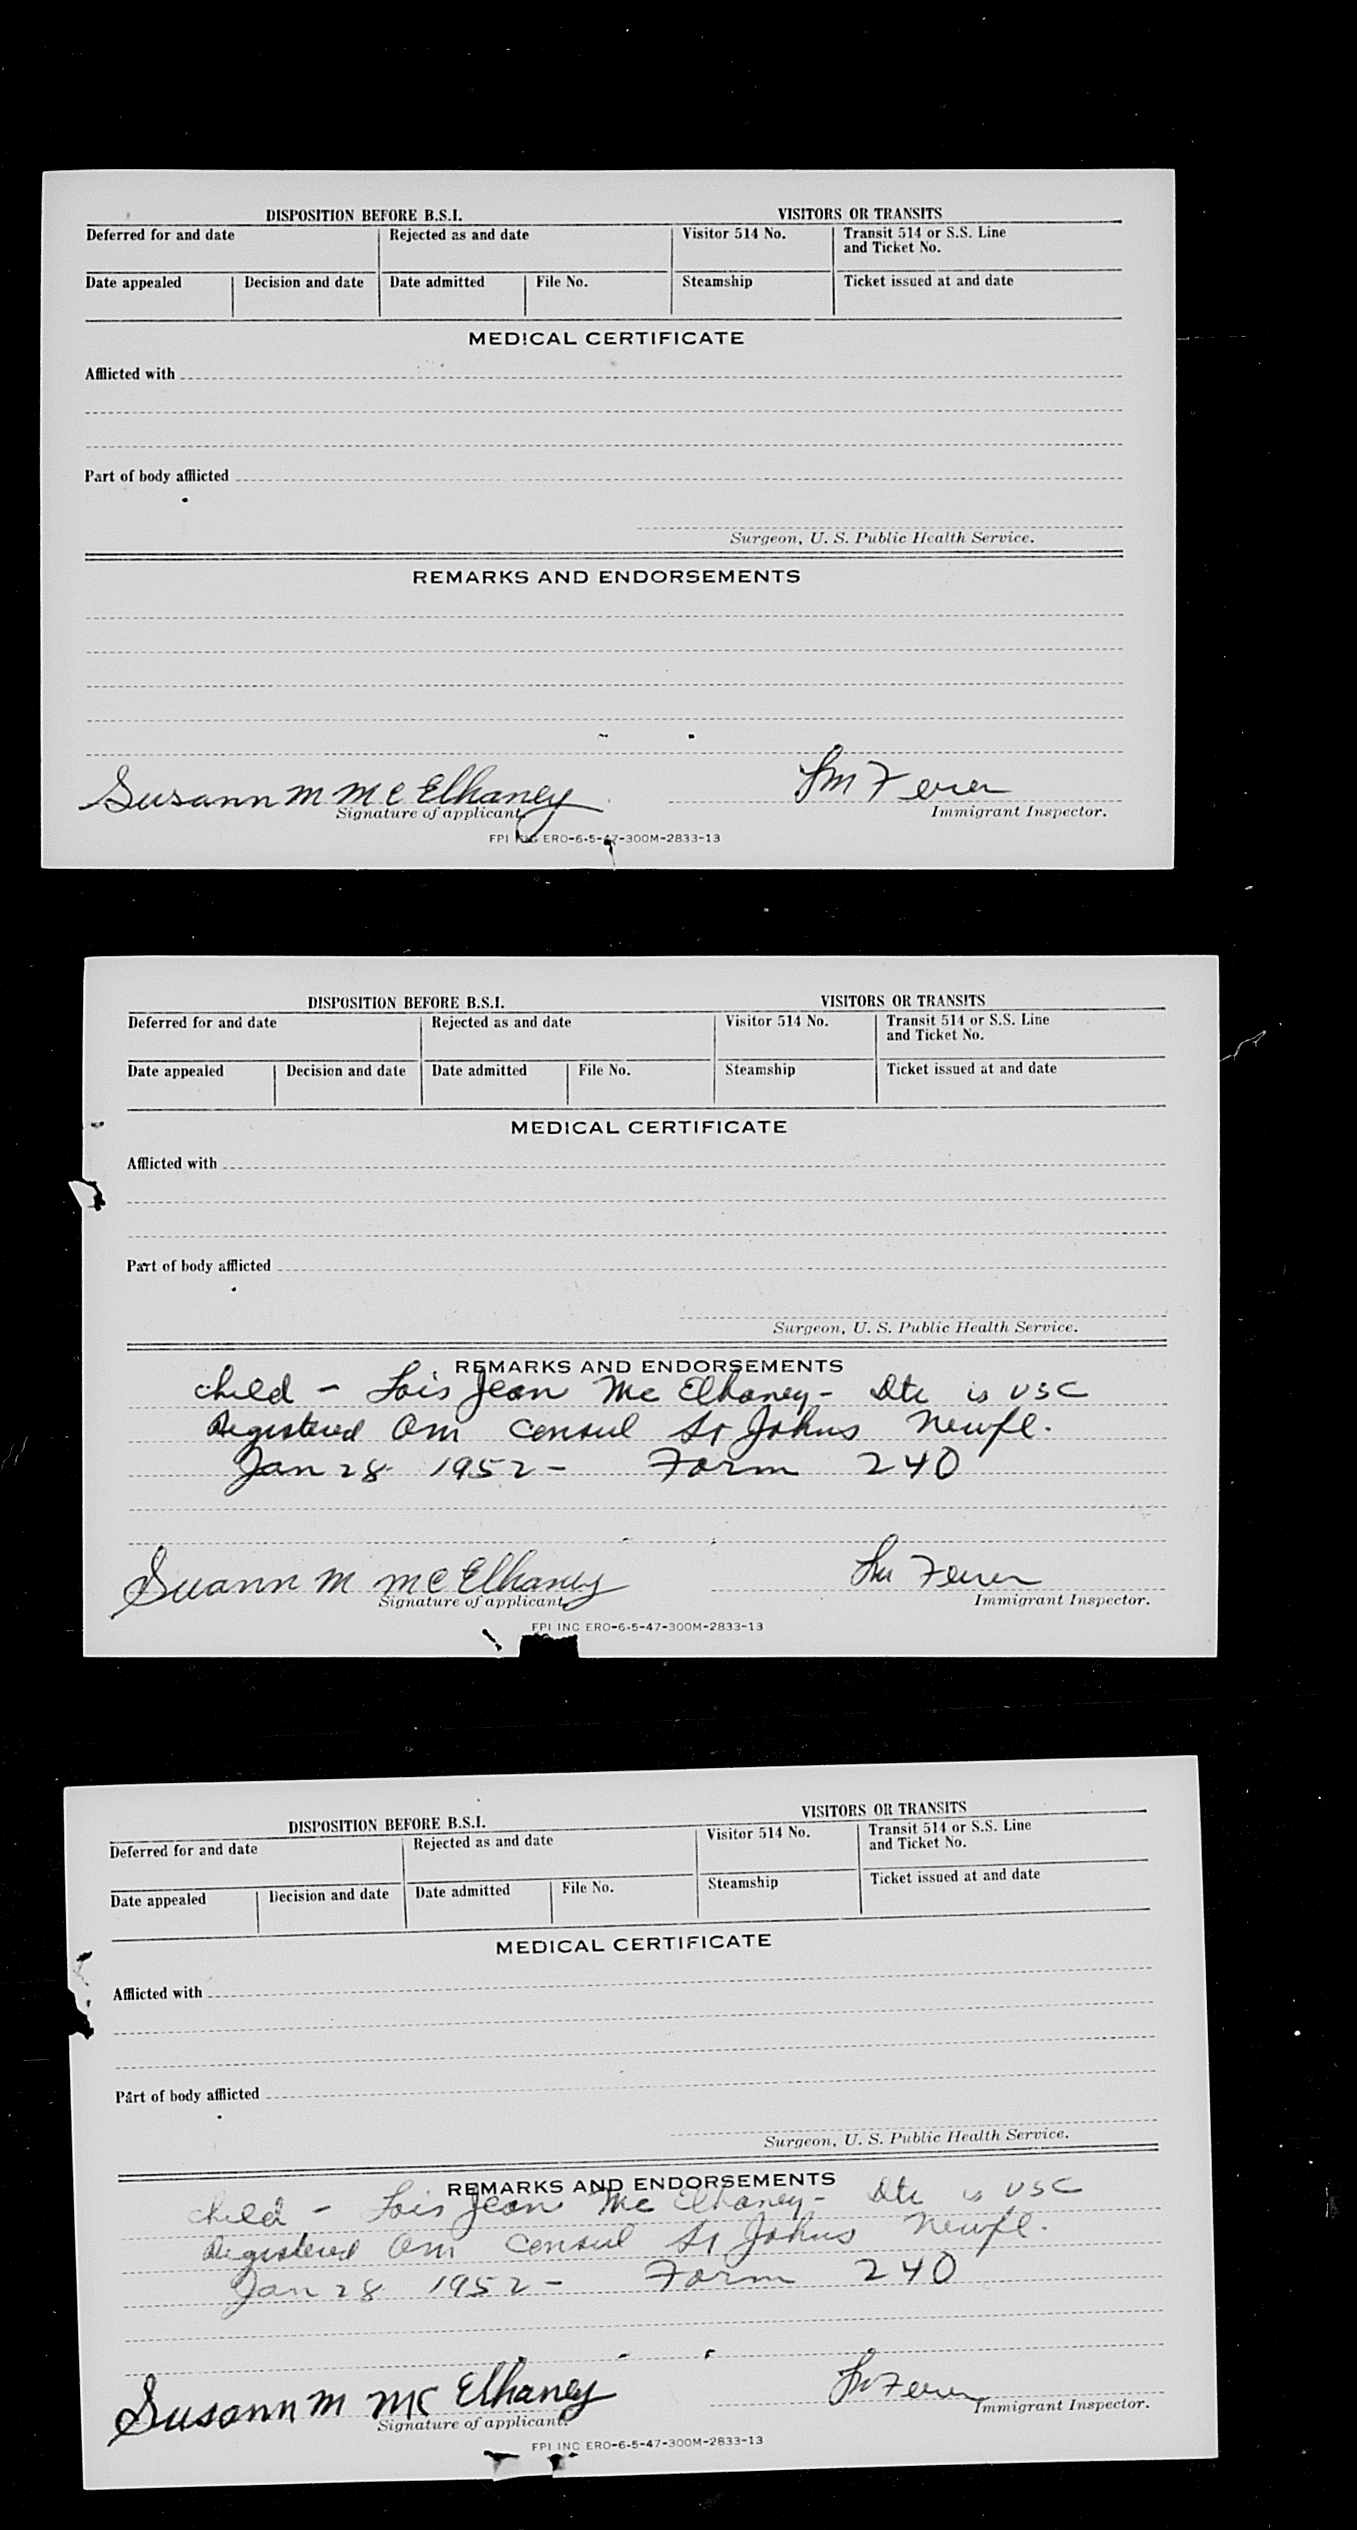 DISPOSITION BEFORE B.S.I. VISITORS OR TRANSITS
Deferred for and date Rejected as and date Visitor 514 No. Transit 514 or S.S. Line
and Ticket No.
Date appealed Decision and date Date admitted File No. Steamship Ticket issued at and date
MEDICAL CERTIFICATE
Afflicted with
Part of body afflicted
Surgeon, U. S. Public Health Service.
REMARKS AND ENDORSEMENTS
Susann M Mc Elhaney
Signature of applicant. Immigrant Inspector.
FPI INC ERO-6-5-47-300M-2833-13
DISPOSITION BEFORE B.S.I. VISITORS OR TRANSITS
Deferred for and date Rejected as and date Visitor 514 No. Transit 514 or S.S. Line
and Ticket No.
Date appealed Decision and date Date admitted File No. Steamship Ticket issued at and date
MEDICAL CERTIFICATE
Afflicted with
Part of body afflicted
Surgeon, U. S. Public Health Service.
REMARKS AND ENDORSEMENTS
child - Lois Jean Mc Elhaney - Dtr is USC
Registered Am Consul St Johns Newfl.
Jan 28 1952 - Form 240
Suann M McElhaney
Signature of applicant. Immigrant Inspector.
FPI INC ERO-6-5-47-300M-2833-13
DISPOSITION BEFORE B.S.I. VISITORS OR TRANSITS
Deferred for and date Rejected as and date Visitor 514 No. Transit 514 or S.S. Line
and Ticket No.
Date appealed Decision and date Date admitted File No. Steamship Ticket issued at and date
MEDICAL CERTIFICATE
Afflicted with
Part of body afflicted
Surgeon, U. S. Public Health Service.
REMARKS AND ENDORSEMENTS
child - Lois Jean Mc Elhaney - Dtr is USC
Registered Am Consul St Johns Newfl.
Jan 28 1952 - Form 240
Susann M Mc Elhaney
Signature of applicant. Immigrant Inspector.
FPI INC ERO-6-5-47-300M-2833-13